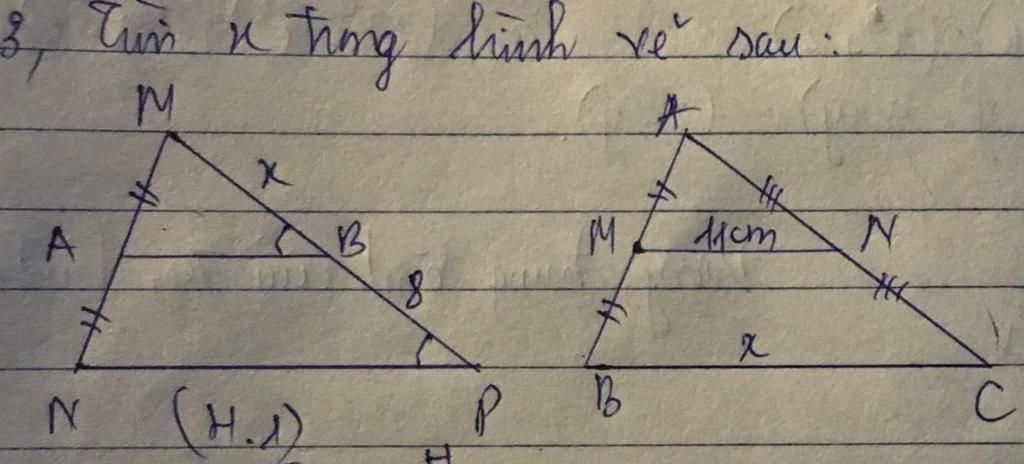 3, Tìm x trong hình vẽ sau:
M
x
A
B
8
N
P
(H.1)
A
M
11cm
N
x
B
C
H